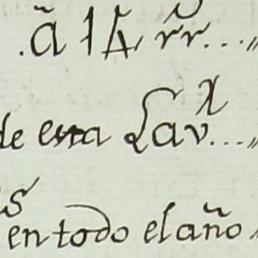 .ã 14 rr̃...
de esta Lavᵃ...
en todo el año